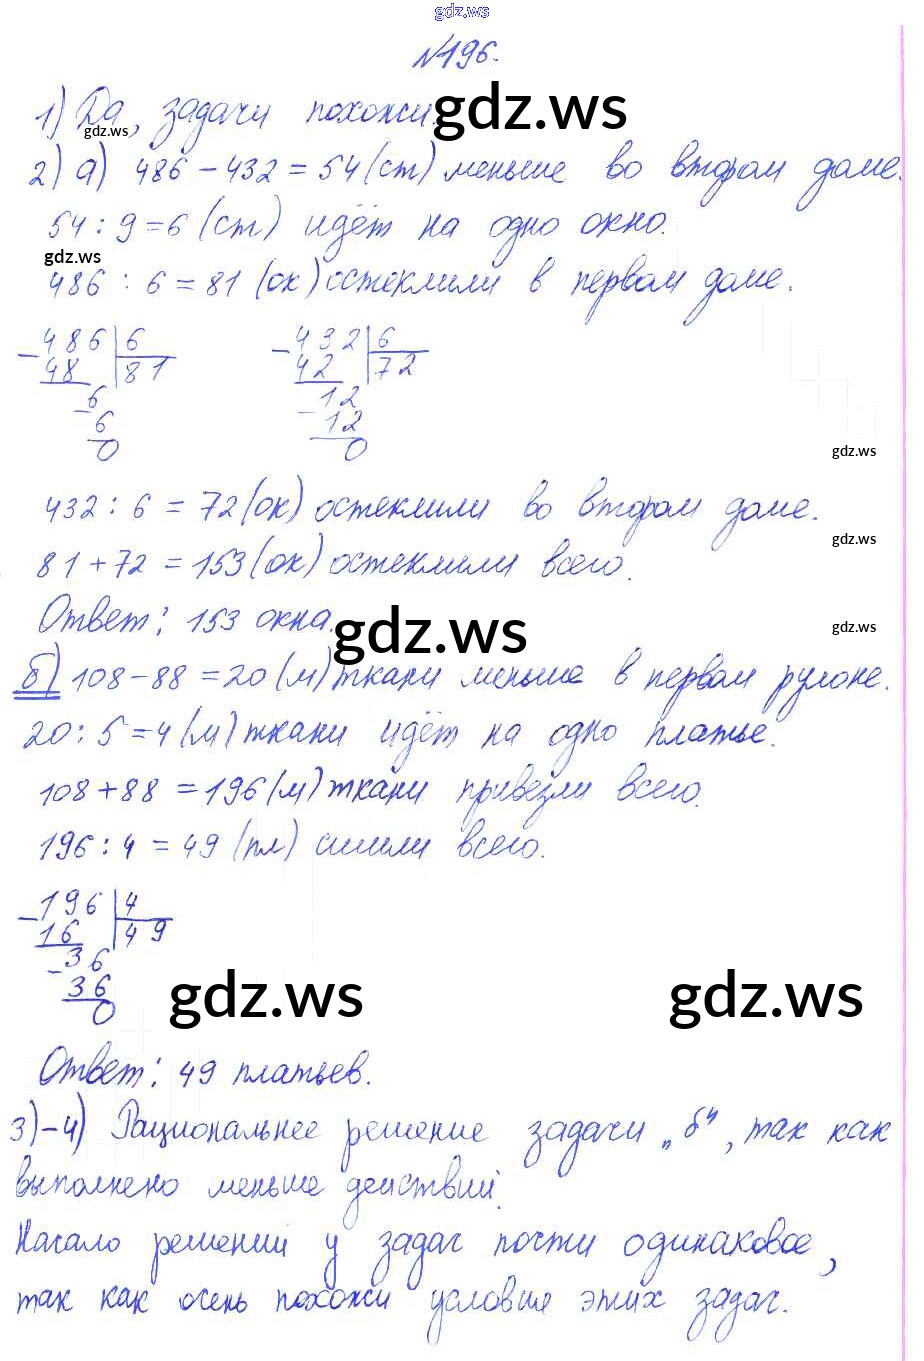 gdz.ws
№196.
1) Да, задачи похожи.
gdz.ws
gdz.ws
2) а) 486 - 432 = 54 (ст) меньше во втором доме.
54 : 9 = 6 (ст) идёт на одно окно.
gdz.ws
486 : 6 = 81 (ок) остеклили в первом доме.
- 486 | 6 - 432 | 6
48 | 81 42 | 72
- 6 - 12
6 12
0 0
gdz.ws
432 : 6 = 72 (ок) остеклили во втором доме.
gdz.ws
81 + 72 = 153 (ок) остеклили всего.
Ответ: 153 окна.
gdz.ws
gdz.ws
б) 108 - 88 = 20 (м) ткани меньше в первом рулоне.
20 : 5 = 4 (м) ткани идёт на одно платье.
108 + 88 = 196 (м) ткани привезли всего.
196 : 4 = 49 (пл) сшили всего.
- 196 | 4
16 | 49
- 36
36
0
gdz.ws
gdz.ws
Ответ: 49 платьев.
3)-4) Рациональнее решение задачи „б", так как
выполнено меньше действий.
Начало решений у задач почти одинаковое,
так как очень похожи условие этих задач.